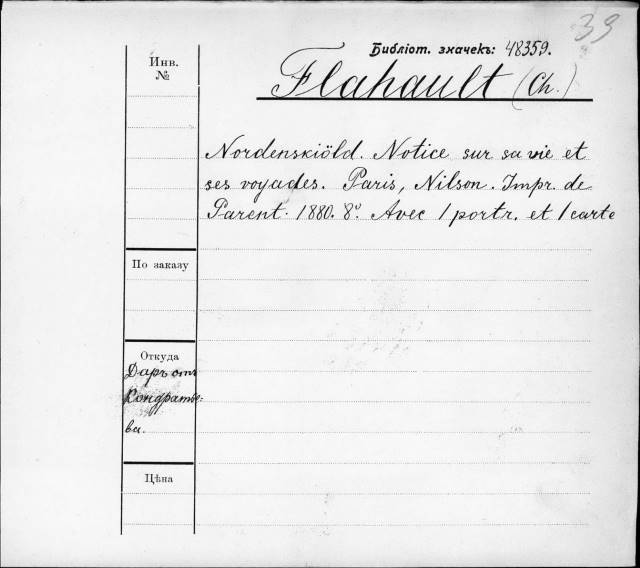 39
Библіот. значекъ: 48359.
Инв.
№
Flahault (Ch.)
Nordenskiöld. Notice sur sa vie et
ses voyades. Paris, Nilson. Impr. de
Parent. 1880. 8º. Avec 1 portr. et 1 carte
По заказу
Откуда
Даръ отъ
Кондратье-
ва.
Цѣна